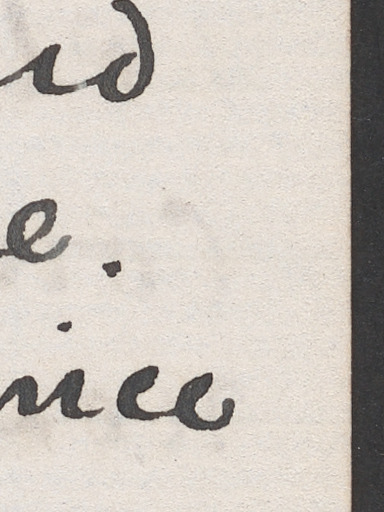 id
e.
nice